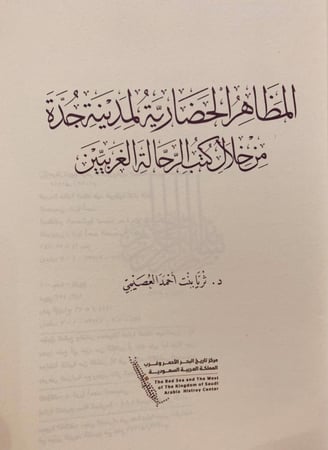 المظاهر الحضارية لمدينة جدة
من خلال كتب الرحالة الغربيين
د. ثريا بنت أحمد العصيمي
مركز تاريخ البحر الأحمر وغرب
المملكة العربية السعودية
The Red Sea and The West
of The Kingdom of Saudi
Arabia Histroy Center